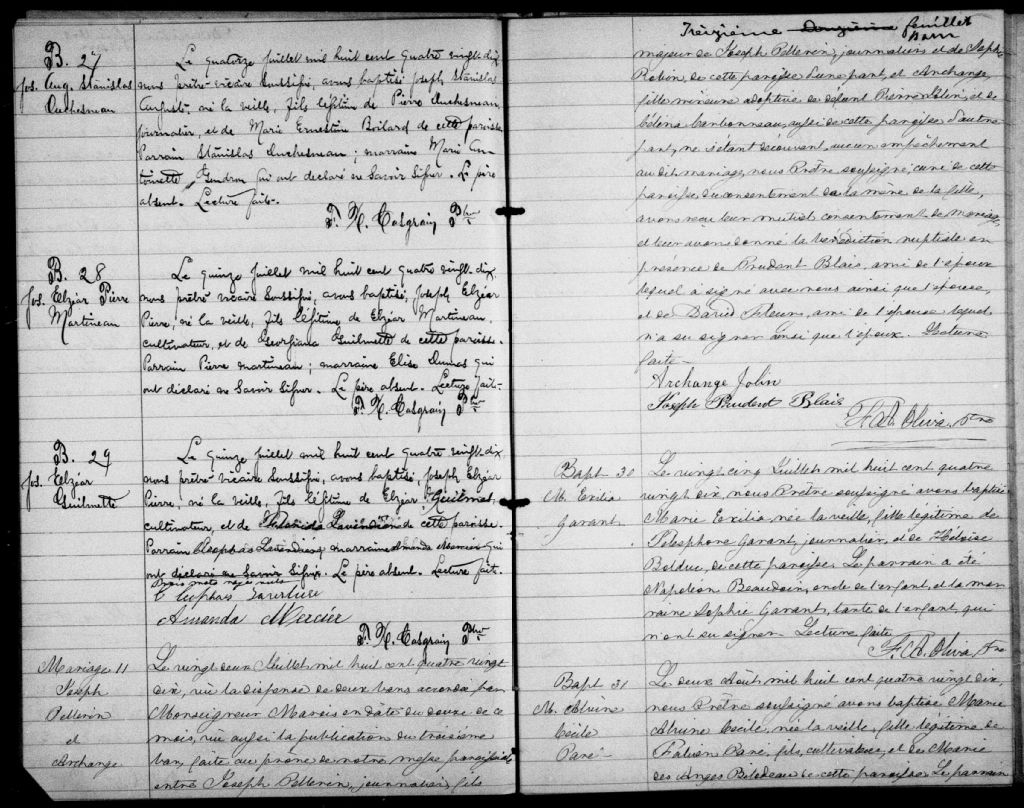 B. 27
Jos. Aug. Stanislas
Duchesneau
Le quatorze juillet mil huit cent quatre vingt-dix
nous prêtre-vicaire soussigné, avons baptisé Joseph Stanislas
Auguste, né la veille, fils légitime de Pierre Duchesneau,
journalier, et de Marie Ernestine Boilard de cette paroisse.
Parrain Stanislas Duchesneau; marraine Marie An-
toinette Gendron qui ont déclaré ne savoir signer. Le père
absent. Lecture faite.
P. H. Casgrain Ptre
B. 28
Jos. Elzéar Pierre
Martineau
Le quinze juillet mil huit cent quatre vingt-dix
nous prêtre vicaire soussigné, avons baptisé, Joseph Elzéar
Pierre, né la veille, fils légitime de Elzéar Martineau,
cultivateur, et de Georgiana Guilmette de cette paroisse.
Parrain Pierre Martineau; marraine Elise Dumas qui
ont déclaré ne savoir signer. Le père absent. Lecture faite.
P. H. Casgrain Ptre
B. 29
Jos. Elzéar
Guilmette
Le quinze juillet mil huit cent quatre vingt-dix
nous prêtre-vicaire soussigné, avons baptisé, Joseph Elzéar
Pierre, né la veille, fils légitime de Elzéar Guilmet
cultivateur, et de de cette paroisse.
Parrain Cléophas marraine Amanda Mercier qui
ont déclaré ne savoir signer. Le père absent. Lecture fait.
mots nuls
Cléophas
Amanda Mercier
P. H. Casgrain Ptre
Mariage 11
Joseph
Pelletrin
et
Archange
Le vingt deux Juillet mil huit cent quatre vingt
dix, vu la dispense de deux bans accordée par
Monseigneur Marois en date du douze de ce
mois, vu aussi la publication du troisième
ban, faite au prône de notre messe paroissiale
entre Joseph Pelletrin, journalier, fils
Treizième feuillet
majeur de Joseph Pelletrin, journalier et de Sophie
de cette paroisse d'une part, et Archange,
fille mineure adoptive de défunt Pierre Jolin, et de
Délena Carbonneau, aussi de cette paroisse d'autre
part, ne s'étant découvert aucun empêchement
au dit mariage, nous Prêtre soussigné, curé de cette
paroisse, du consentement de la mère de la fille,
avons reçu leur mutuel consentement de mariage
et leur avons donné la bénédiction nuptiale en
présence de Prudent Blais, ami de l'époux
lequel a signé avec nous ainsi que l'épouse,
et de David ami de l'épouse lequel
n'a su signer ainsi que l'époux. Lecture
faite
Archange Jolin
Joseph Prudent Blais
F. A. Oliva, Ptre
Bapt 30
M. Exilia
Garant
Le vingt cinq Juillet mil huit cent quatre
vingt dix, nous Prêtre soussigné avons baptisé
Marie Exilia née la veille, fille légitime de
Télesphore Garant, journalier, et de Héloïse
Bolduc, de cette paroisse. Le parrain a été
Napoléon Beaudoin, oncle de l'enfant, et la mar-
raine Sophie Garant, tante de l'enfant, qui
n'ont su signer. Lecture faite
F. A. Oliva Ptre
Bapt 31
M. Alvine
Cécile
Paré
Le deux Août, mil huit cent quatre vingt dix,
nous Prêtre soussigné avons baptisé Marie
Alvine Cécile, née la veille, fille légitime de
Fabien Paré, fils, cultivateur, et de Marie
des Anges Bilodeau de cette paroisse. Le parrain